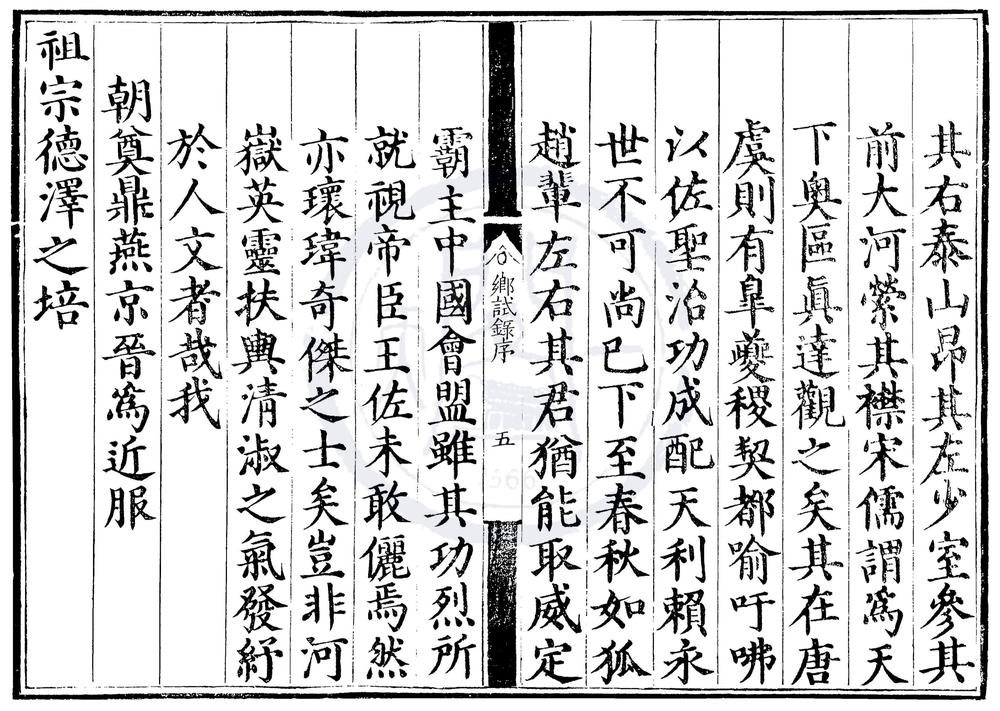 其右泰山昂其左少室參其
前大河縈其襟宋儒謂爲天
下奥區眞達觀之矣其在唐
虞則有臯夔稷契都喻吁咈
以佐聖治功成配天利賴永
世不可尚已下至春秋如狐
趙輩左右其君猶能取威定
鄉試錄序
五
霸主中國會盟雖其功烈所
就視帝臣王佐未敢儷焉然
亦瓌瑋奇傑之士矣豈非河
嶽英靈扶輿清淑之氣發紓
於人文者哉我
朝奠鼎燕京晉爲近服
祖宗德澤之培